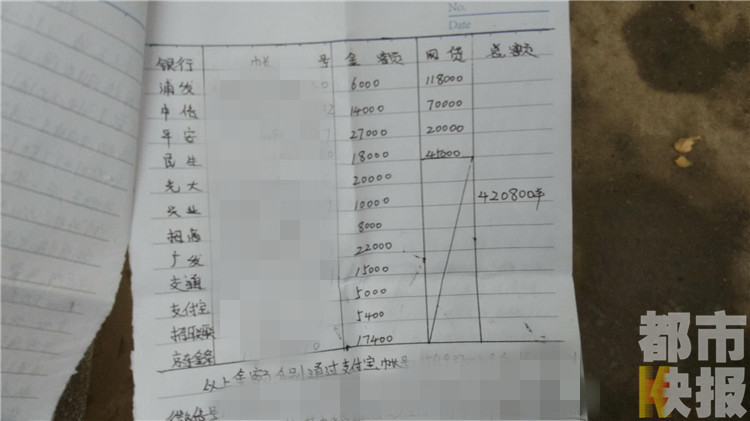 No.
Date
银行 帐 号 金额 网贷 总额
浦发 0 6000 118000
中信 2 14000 70000
平安 7 27000 20000
民生 0 18000 45000
光大 20000
兴业 10000 420800
招商 8000
广发 22000
交通 15000
支付宝 5000
招联 5400
京东金条 0 17400
以上金额 通过支付宝帐号
微信号
都市
快报